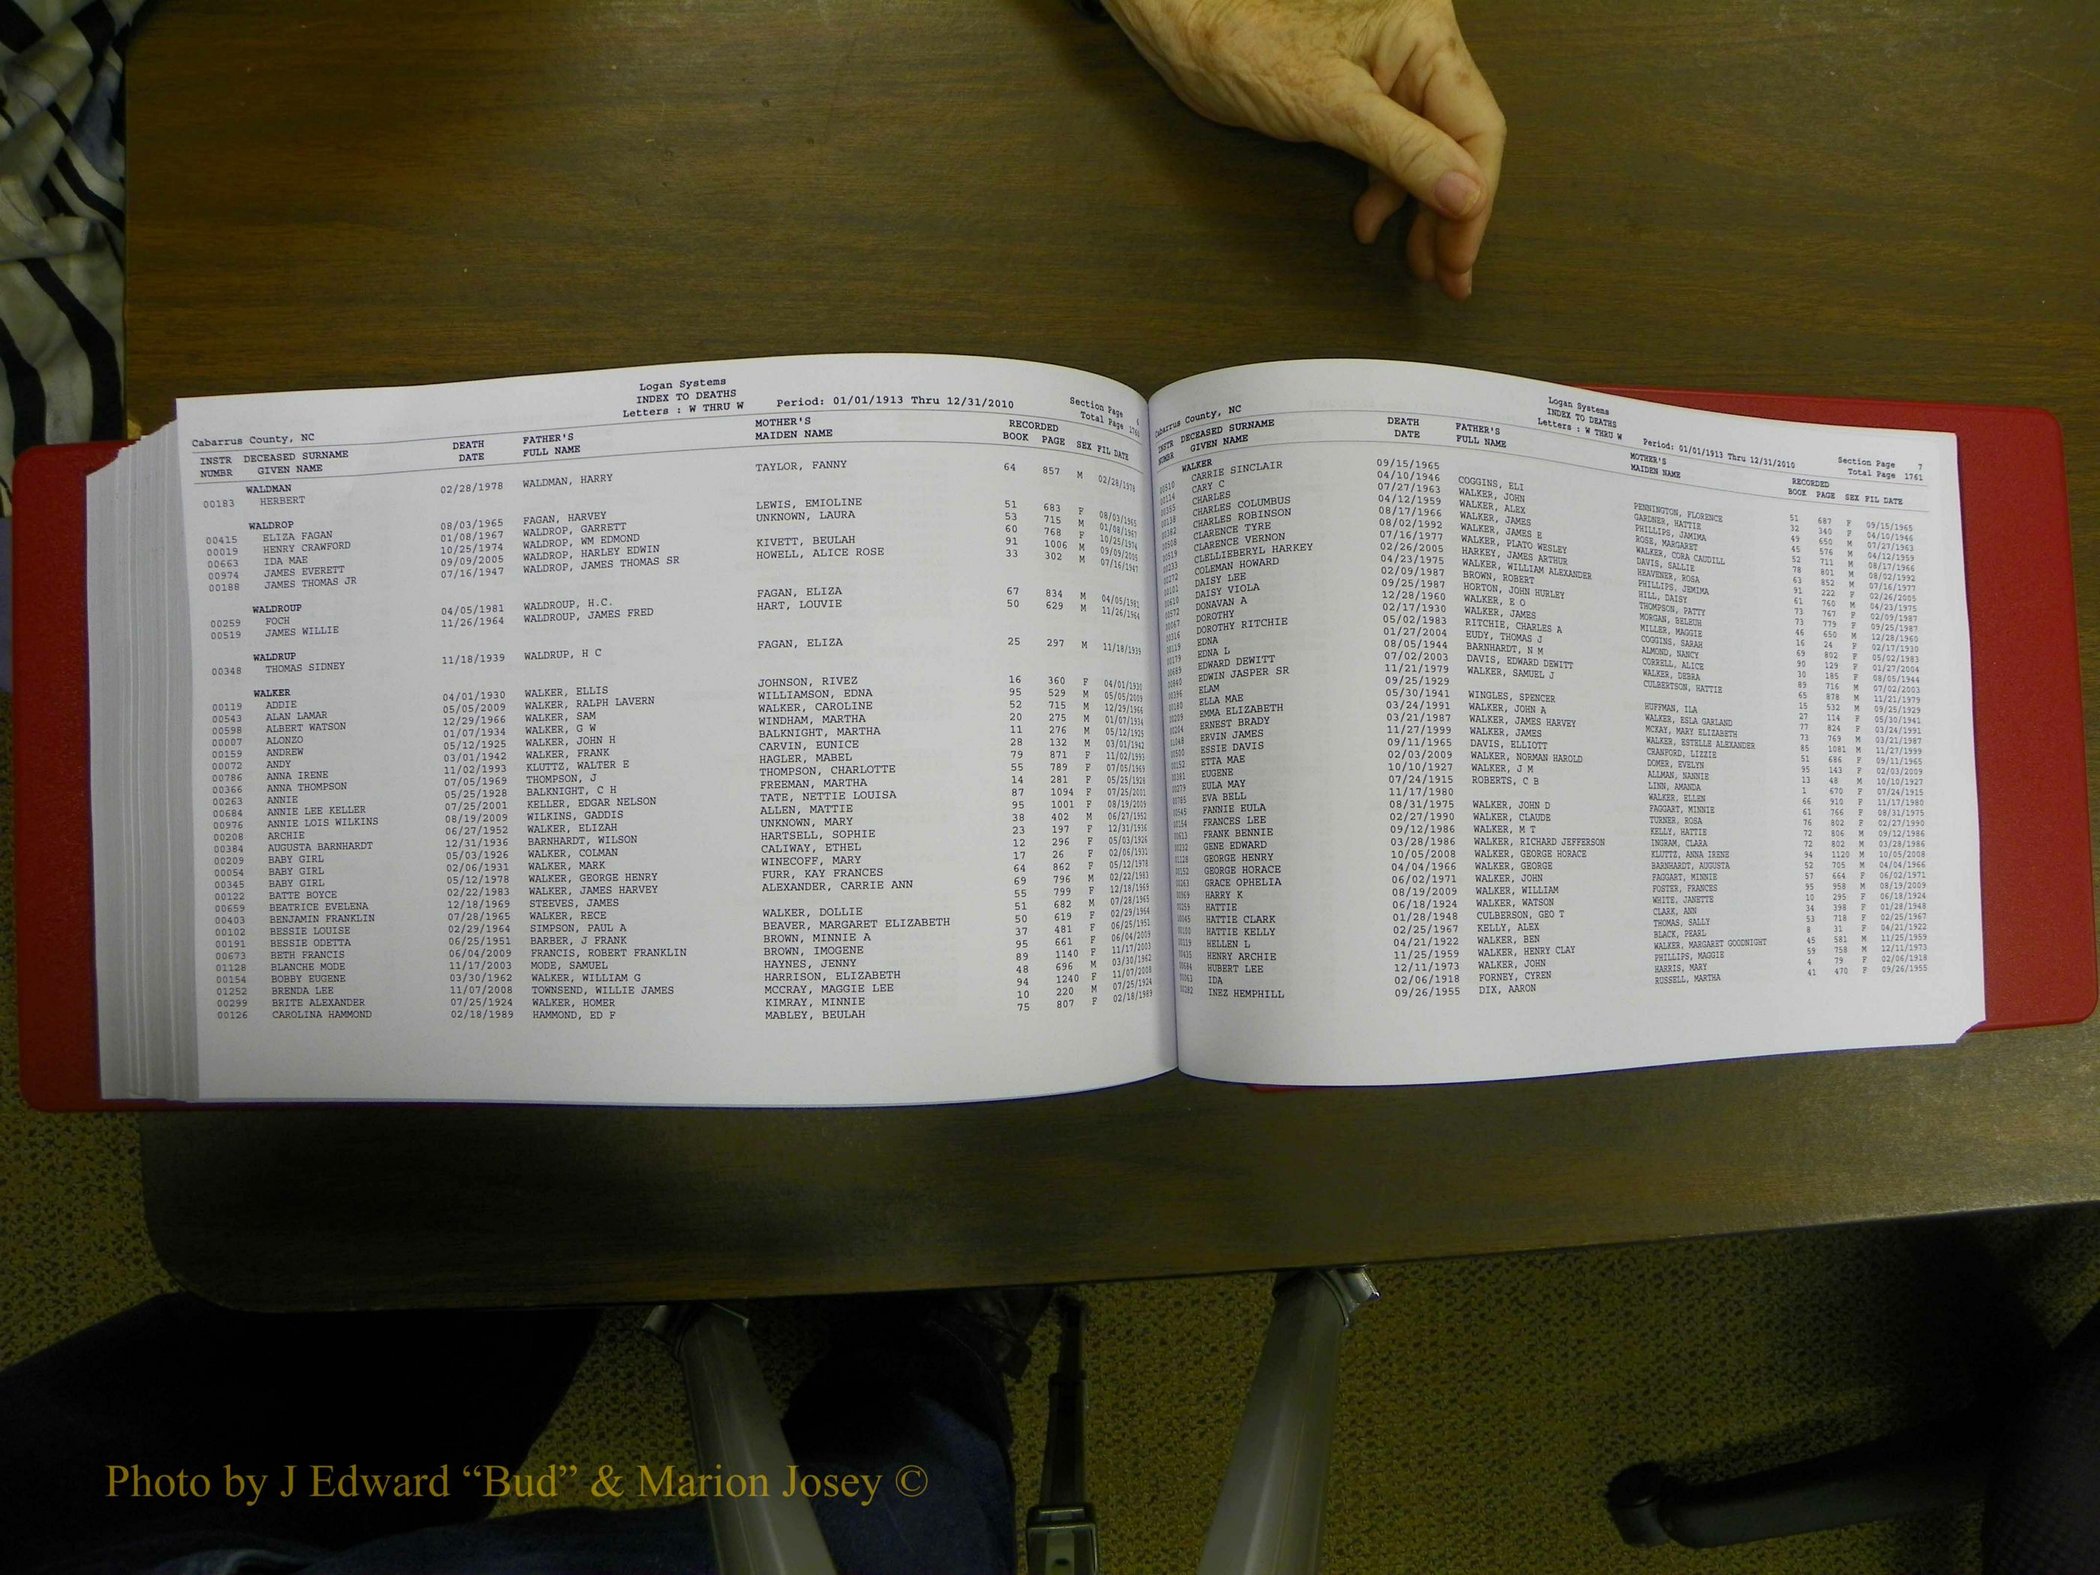 Logan Systems
INDEX TO DEATHS
Letters : W THRU W Period: 01/01/1913 Thru 12/31/2010
Section Page 6
Total Page 1760
Cabarrus County, NC
INSTR NUMBR DECEASED SURNAME GIVEN NAME DEATH DATE FATHER'S FULL NAME MOTHER'S MAIDEN NAME RECORDED BOOK PAGE SEX FIL DATE
WALDMAN
00183 HERBERT 02/28/1978 WALDMAN, HARRY TAYLOR, FANNY 64 857 M 02/28/1978
WALDROP
00415 ELIZA FAGAN 08/03/1965 FAGAN, HARVEY LEWIS, EMIOLINE 51 683 F 08/03/1965
00019 HENRY CRAWFORD 01/08/1967 WALDROP, GARRETT UNKNOWN, LAURA 53 715 M 01/08/1967
00663 IDA MAE 10/25/1974 WALDROP, WM EDMOND 60 768 F 10/25/1974
00974 JAMES EVERETT 09/09/2005 WALDROP, HARLEY EDWIN KIVETT, BEULAH 91 1006 M 09/09/2005
00188 JAMES THOMAS JR 07/16/1947 WALDROP, JAMES THOMAS SR HOWELL, ALICE ROSE 33 302 M 07/16/1947
WALDROUP
00259 FOCH 04/05/1981 WALDROUP, H.C. FAGAN, ELIZA 67 834 M 04/05/1981
00519 JAMES WILLIE 11/26/1964 WALDROUP, JAMES FRED HART, LOUVIE 50 629 M 11/26/1964
WALDRUP
00348 THOMAS SIDNEY 11/18/1939 WALDRUP, H C FAGAN, ELIZA 25 297 M 11/18/1939
WALKER
00119 ADDIE 04/01/1930 WALKER, ELLIS JOHNSON, RIVEZ 16 360 F 04/01/1930
00543 ALAN LAMAR 05/05/2009 WALKER, RALPH LAVERN WILLIAMSON, EDNA 95 529 M 05/05/2009
00598 ALBERT WATSON 12/29/1966 WALKER, SAM WALKER, CAROLINE 52 715 M 12/29/1966
00007 ALONZO 01/07/1934 WALKER, G W WINDHAM, MARTHA 20 275 M 01/07/1934
00159 ANDREW 05/12/1925 WALKER, JOHN H BALKNIGHT, MARTHA 11 276 M 05/12/1925
00072 ANDY 03/01/1942 WALKER, FRANK CARVIN, EUNICE 28 132 M 03/01/1942
00786 ANNA IRENE 11/02/1993 KLUTTZ, WALTER E HAGLER, MABEL 79 871 F 11/02/1993
00366 ANNA THOMPSON 07/05/1969 THOMPSON, J THOMPSON, CHARLOTTE 55 789 F 07/05/1969
00263 ANNIE 05/25/1928 BALKNIGHT, C H FREEMAN, MARTHA 14 281 F 05/25/1928
00684 ANNIE LEE KELLER 07/25/2001 KELLER, EDGAR NELSON TATE, NETTIE LOUISA 87 1094 F 07/25/2001
00976 ANNIE LOIS WILKINS 08/19/2009 WILKINS, GADDIS ALLEN, MATTIE 95 1001 F 08/19/2009
00208 ARCHIE 06/27/1952 WALKER, ELIZAH UNKNOWN, MARY 38 402 M 06/27/1952
00384 AUGUSTA BARNHARDT 12/31/1936 BARNHARDT, WILSON HARTSELL, SOPHIE 23 197 F 12/31/1936
00209 BABY GIRL 05/03/1926 WALKER, COLMAN CALIWAY, ETHEL 12 296 F 05/03/1926
00054 BABY GIRL 02/06/1931 WALKER, MARK WINECOFF, MARY 17 26 F 02/06/1931
00345 BABY GIRL 05/12/1978 WALKER, GEORGE HENRY FURR, KAY FRANCES 64 862 F 05/12/1978
00122 BATTE BOYCE 02/22/1983 WALKER, JAMES HARVEY ALEXANDER, CARRIE ANN 69 796 M 02/22/1983
00659 BEATRICE EVELENA 12/18/1969 STEEVES, JAMES 55 799 F 12/18/1969
00403 BENJAMIN FRANKLIN 07/28/1965 WALKER, RECE WALKER, DOLLIE 51 682 M 07/28/1965
00102 BESSIE LOUISE 02/29/1964 SIMPSON, PAUL A BEAVER, MARGARET ELIZABETH 50 619 F 02/29/1964
00191 BESSIE ODETTA 06/25/1951 BARBER, J FRANK BROWN, MINNIE A 37 481 F 06/25/1951
00673 BETH FRANCIS 06/04/2009 FRANCIS, ROBERT FRANKLIN BROWN, IMOGENE 95 661 F 06/04/2009
01128 BLANCHE MODE 11/17/2003 MODE, SAMUEL HAYNES, JENNY 89 1140 F 11/17/2003
00154 BOBBY EUGENE 03/30/1962 WALKER, WILLIAM G HARRISON, ELIZABETH 48 696 M 03/30/1962
01252 BRENDA LEE 11/07/2008 TOWNSEND, WILLIE JAMES MCCRAY, MAGGIE LEE 94 1240 F 11/07/2008
00299 BRITE ALEXANDER 07/25/1924 WALKER, HOMER KIMRAY, MINNIE 10 220 M 07/25/1924
00126 CAROLINA HAMMOND 02/18/1989 HAMMOND, ED F MABLEY, BEULAH 75 807 F 02/18/1989
Logan Systems
INDEX TO DEATHS
Letters : W THRU W Period: 01/01/1913 Thru 12/31/2010
Section Page 7
Total Page 1761
Cabarrus County, NC
INSTR NUMBR DECEASED SURNAME GIVEN NAME
WALKER
CARRIE SINCLAIR
CARY C
CHARLES
CHARLES COLUMBUS
CHARLES ROBINSON
CLARENCE TYRE
CLARENCE VERNON
CLELLIEBERYL HARKEY
COLEMAN HOWARD
DAISY LEE
DAISY VIOLA
DONAVAN A
DOROTHY
DOROTHY RITCHIE
EDNA
EDNA L
EDWARD DEWITT
EDWIN JASPER SR
ELAM
ELLA MAE
EMMA ELIZABETH
ERNEST BRADY
ERVIN JAMES
ESSIE DAVIS
ETTA MAE
EUGENE
EULA MAY
EVA BELL
FANNIE EULA
FRANCES LEE
FRANK BENNIE
GENE EDWARD
GEORGE HENRY
GEORGE HORACE
GRACE OPHELIA
HARRY K
HATTIE
HATTIE CLARK
HATTIE KELLY
HELLEN L
HENRY ARCHIE
HUBERT LEE
IDA
INEZ HEMPHILL
DEATH DATE
09/15/1965
04/10/1946
07/27/1963
04/12/1959
08/17/1966
08/02/1992
07/16/1977
02/26/2005
04/23/1975
02/09/1987
09/25/1987
12/28/1960
02/17/1930
05/02/1983
01/27/2004
08/05/1944
07/02/2003
11/21/1979
09/25/1929
05/30/1941
03/24/1991
03/21/1987
11/27/1999
09/11/1965
02/03/2009
10/10/1927
07/24/1915
11/17/1980
08/31/1975
02/27/1990
09/12/1986
03/28/1986
10/05/2008
04/04/1966
06/02/1971
08/19/2009
06/18/1924
01/28/1948
02/25/1967
04/21/1922
11/25/1959
12/11/1973
02/06/1918
09/26/1955
FATHER'S FULL NAME
COGGINS, ELI
WALKER, JOHN
WALKER, ALEX
WALKER, JAMES
WALKER, JAMES E
WALKER, PLATO WESLEY
HARKEY, JAMES ARTHUR
WALKER, WILLIAM ALEXANDER
BROWN, ROBERT
HORTON, JOHN HURLEY
WALKER, E O
WALKER, JAMES
RITCHIE, CHARLES A
EUDY, THOMAS J
BARNHARDT, N M
DAVIS, EDWARD DEWITT
WALKER, SAMUEL J
WINGLES, SPENCER
WALKER, JOHN A
WALKER, JAMES HARVEY
WALKER, JAMES
DAVIS, ELLIOTT
WALKER, NORMAN HAROLD
WALKER, J M
ROBERTS, C B
WALKER, JOHN D
WALKER, CLAUDE
WALKER, M T
WALKER, RICHARD JEFFERSON
WALKER, GEORGE HORACE
WALKER, GEORGE
WALKER, JOHN
WALKER, WILLIAM
WALKER, WATSON
CULBERSON, GEO T
KELLY, ALEX
WALKER, BEN
WALKER, HENRY CLAY
WALKER, JOHN
FORNEY, CYREN
DIX, AARON
MOTHER'S MAIDEN NAME
PENNINGTON, FLORENCE
GARDNER, HATTIE
PHILLIPS, JAMIMA
ROSE, MARGARET
WALKER, CORA CAUDILL
DAVIS, SALLIE
HEAVENER, ROSA
PHILLIPS, JEMIMA
HILL, DAISY
THOMPSON, PATTY
MORGAN, BELEUH
MILLER, MAGGIE
COGGINS, SARAH
ALMOND, NANCY
CORRELL, ALICE
WALKER, DEBRA
CULBERTSON, HATTIE
HUFFMAN, ILA
WALKER, ESLA GARLAND
MCKAY, MARY ELIZABETH
WALKER, ESTELLE ALEXANDER
CRANFORD, LIZZIE
DOMER, EVELYN
ALLMAN, NANNIE
LINN, AMANDA
WALKER, ELLEN
FAGGART, MINNIE
TURNER, ROSA
KELLY, HATTIE
INGRAM, CLARA
KLUTTZ, ANNA IRENE
BARNHARDT, AUGUSTA
FAGGART, MINNIE
FOSTER, FRANCES
WHITE, JANETTE
CLARK, ANN
THOMAS, SALLY
BLACK, PEARL
WALKER, MARGARET GOODNIGHT
PHILLIPS, MAGGIE
HARRIS, MARY
RUSSELL, MARTHA
RECORDED BOOK PAGE SEX FIL DATE
51 687 F 09/15/1965
32 340 F 04/10/1946
49 650 M 07/27/1963
45 576 M 04/12/1959
52 711 M 08/17/1966
78 801 M 08/02/1992
63 852 M 07/16/1977
91 222 F 02/26/2005
61 760 M 04/23/1975
73 767 F 02/09/1987
73 779 F 09/25/1987
46 650 M 12/28/1960
16 24 F 02/17/1930
69 802 F 05/02/1983
90 129 F 01/27/2004
30 185 F 08/05/1944
89 716 M 07/02/2003
65 878 M 11/21/1979
15 532 M 09/25/1929
27 114 F 05/30/1941
77 824 F 03/24/1991
73 769 M 03/21/1987
85 1081 M 11/27/1999
51 686 F 09/11/1965
95 143 F 02/03/2009
13 48 M 10/10/1927
1 670 F 07/24/1915
66 910 F 11/17/1980
61 766 F 08/31/1975
76 802 F 02/27/1990
72 806 M 09/12/1986
72 802 M 03/28/1986
94 1120 M 10/05/2008
52 705 M 04/04/1966
57 664 F 06/02/1971
95 958 M 08/19/2009
10 295 F 06/18/1924
34 398 F 01/28/1948
53 718 F 02/25/1967
8 31 F 04/21/1922
45 581 M 11/25/1959
59 758 M 12/11/1973
4 79 F 02/06/1918
41 470 F 09/26/1955
Photo by J Edward “Bud” & Marion Josey ©